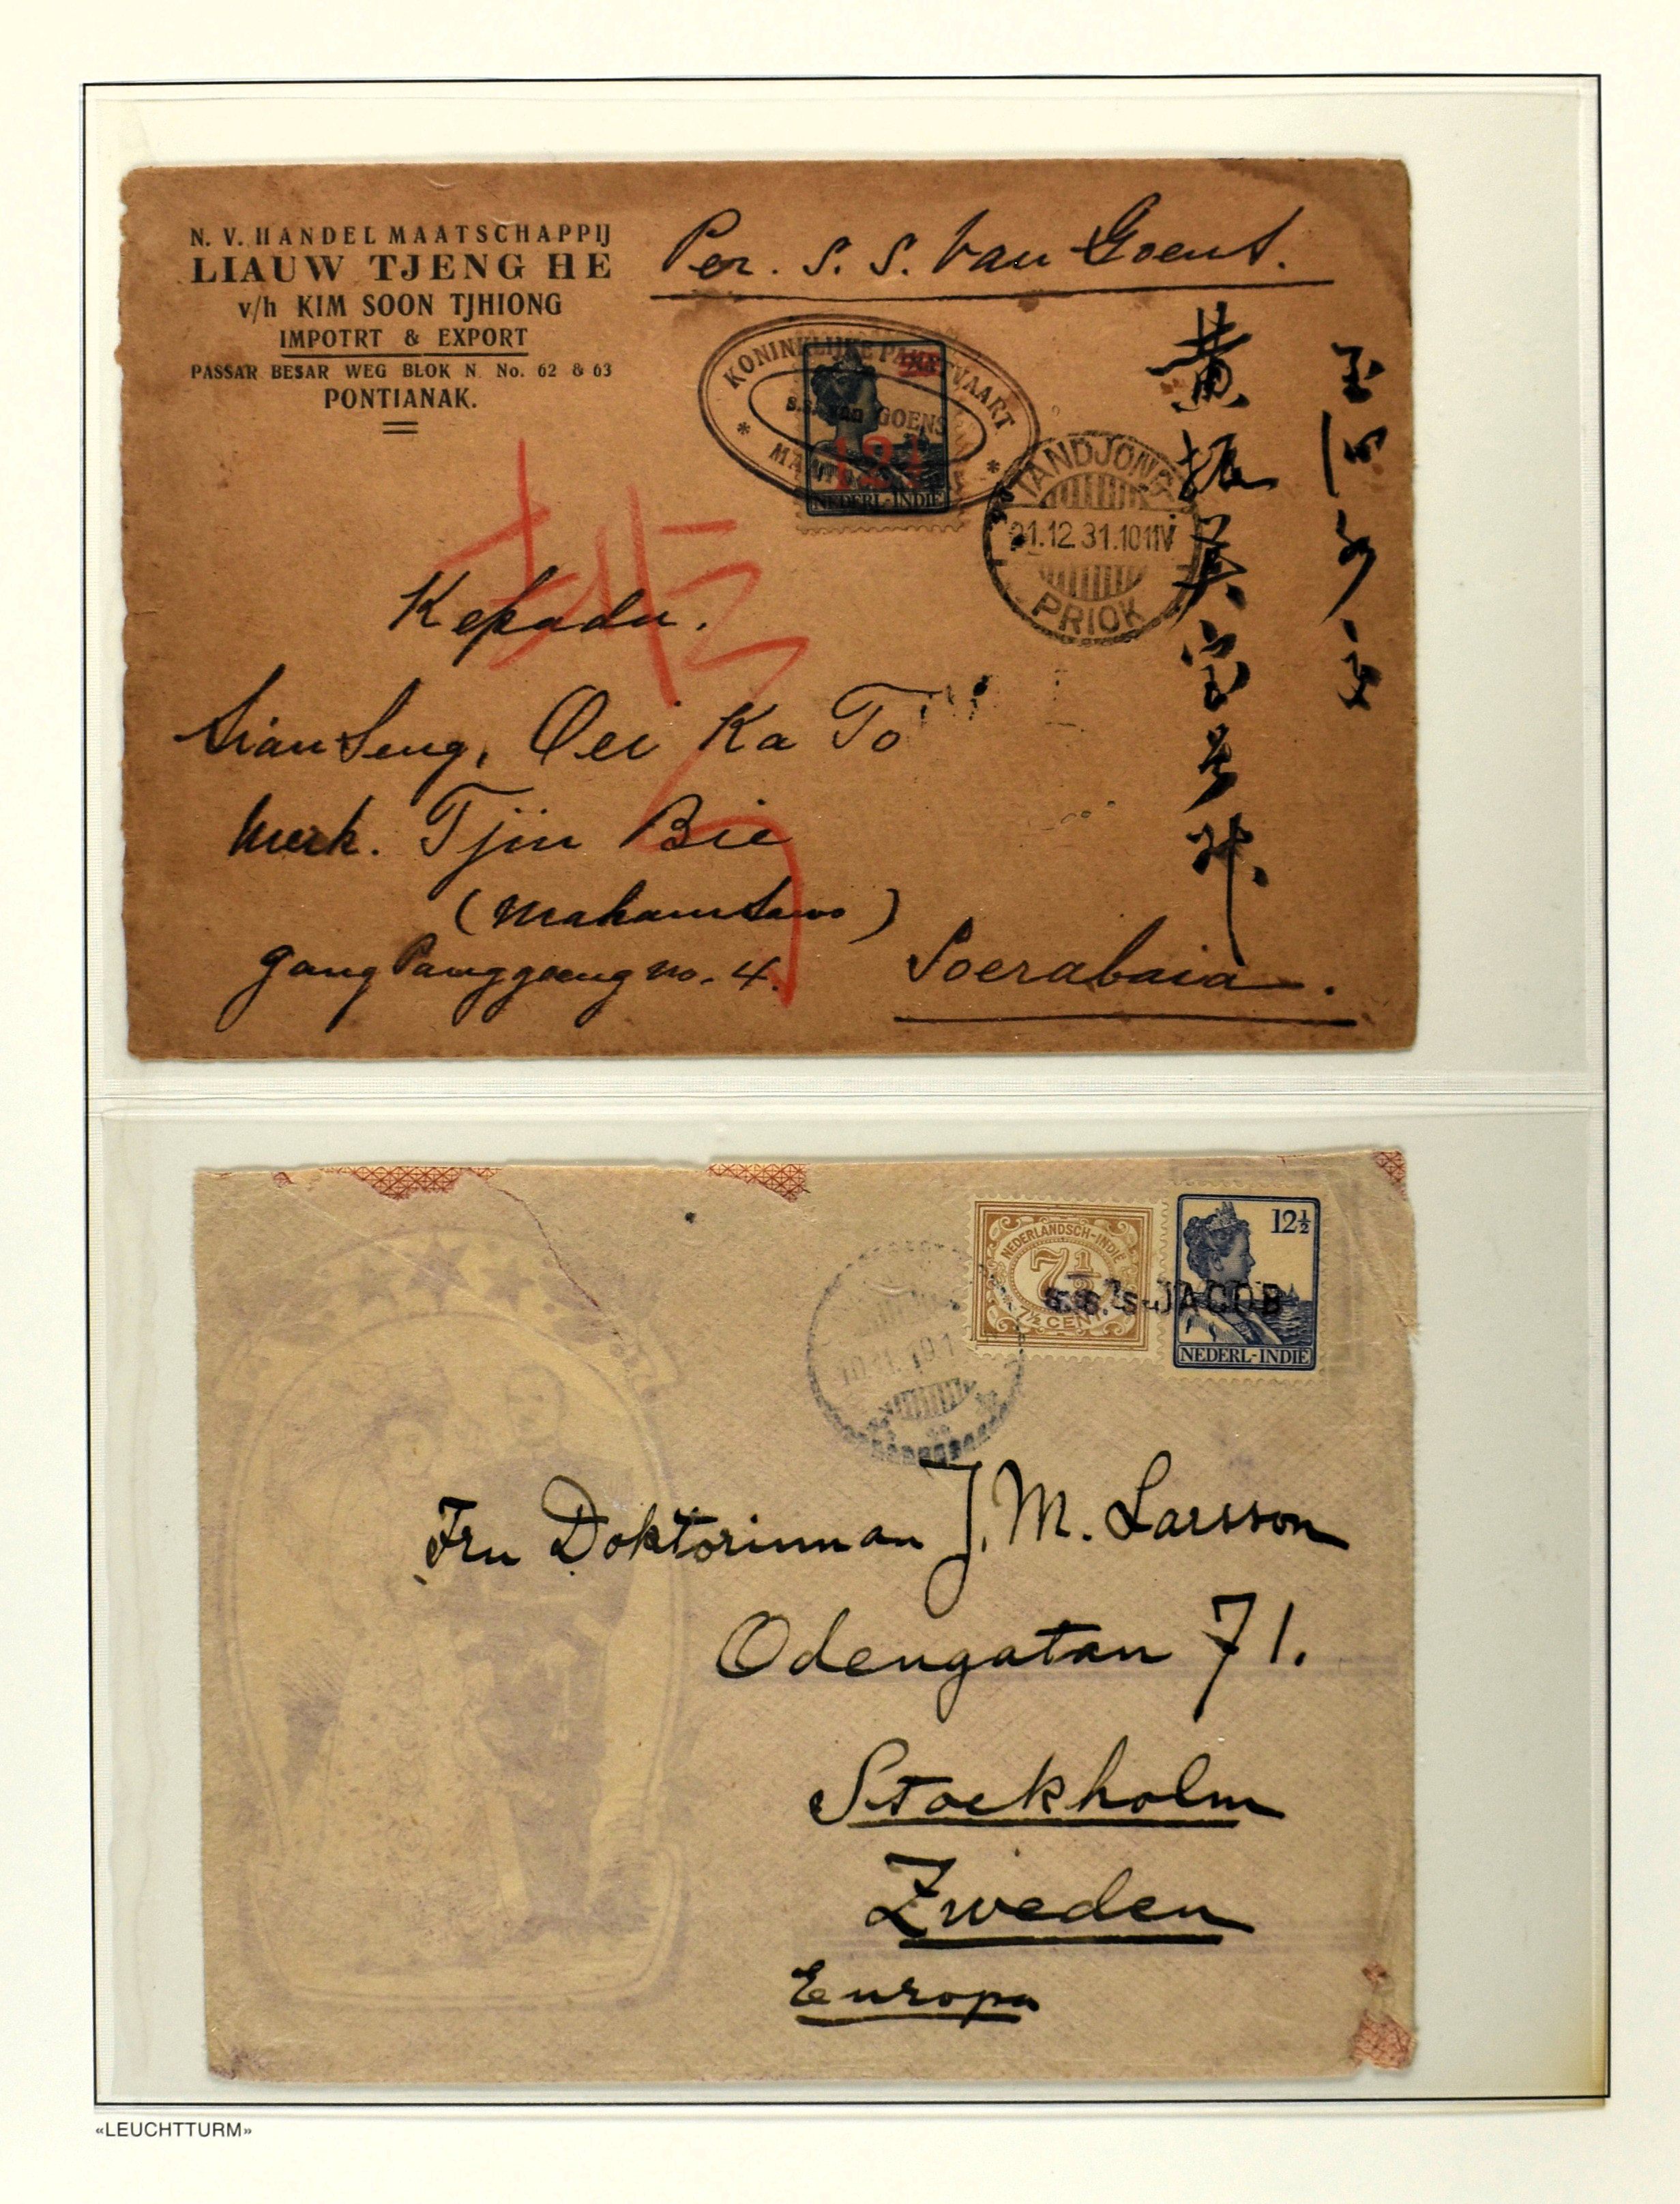 N. V. HANDEL MAATSCHAPPIJ
LIAUW TJENG HE
v/h KIM SOON TJHIONG
IMPOTRT & EXPORT
PASSAR BESAR WEG BLOK N No. 62 & 63
PONTIANAK.
Per. S. S. Van Goens.
KONINKLIJKE PAKETVAART
S.S. VAN GOENS
12½
NEDERL-INDIE
TANDJONG
21.12.31.10 11V
PRIOK
黄振美宝号
Kepada.
Sianseng, Oei Ka To
Merk. Tjin Bie
gang Panggoeng no. 4.
Soerabaia.
NEDERLANDSCH-INDIË
7½
7½ CENT
12½
NEDERL-INDIË
S.S. 's-JACOB
Fru Doktorinnan J. M. Larsson
Odengatan 71.
Stockholm
Zweden
Europa
«LEUCHTTURM»